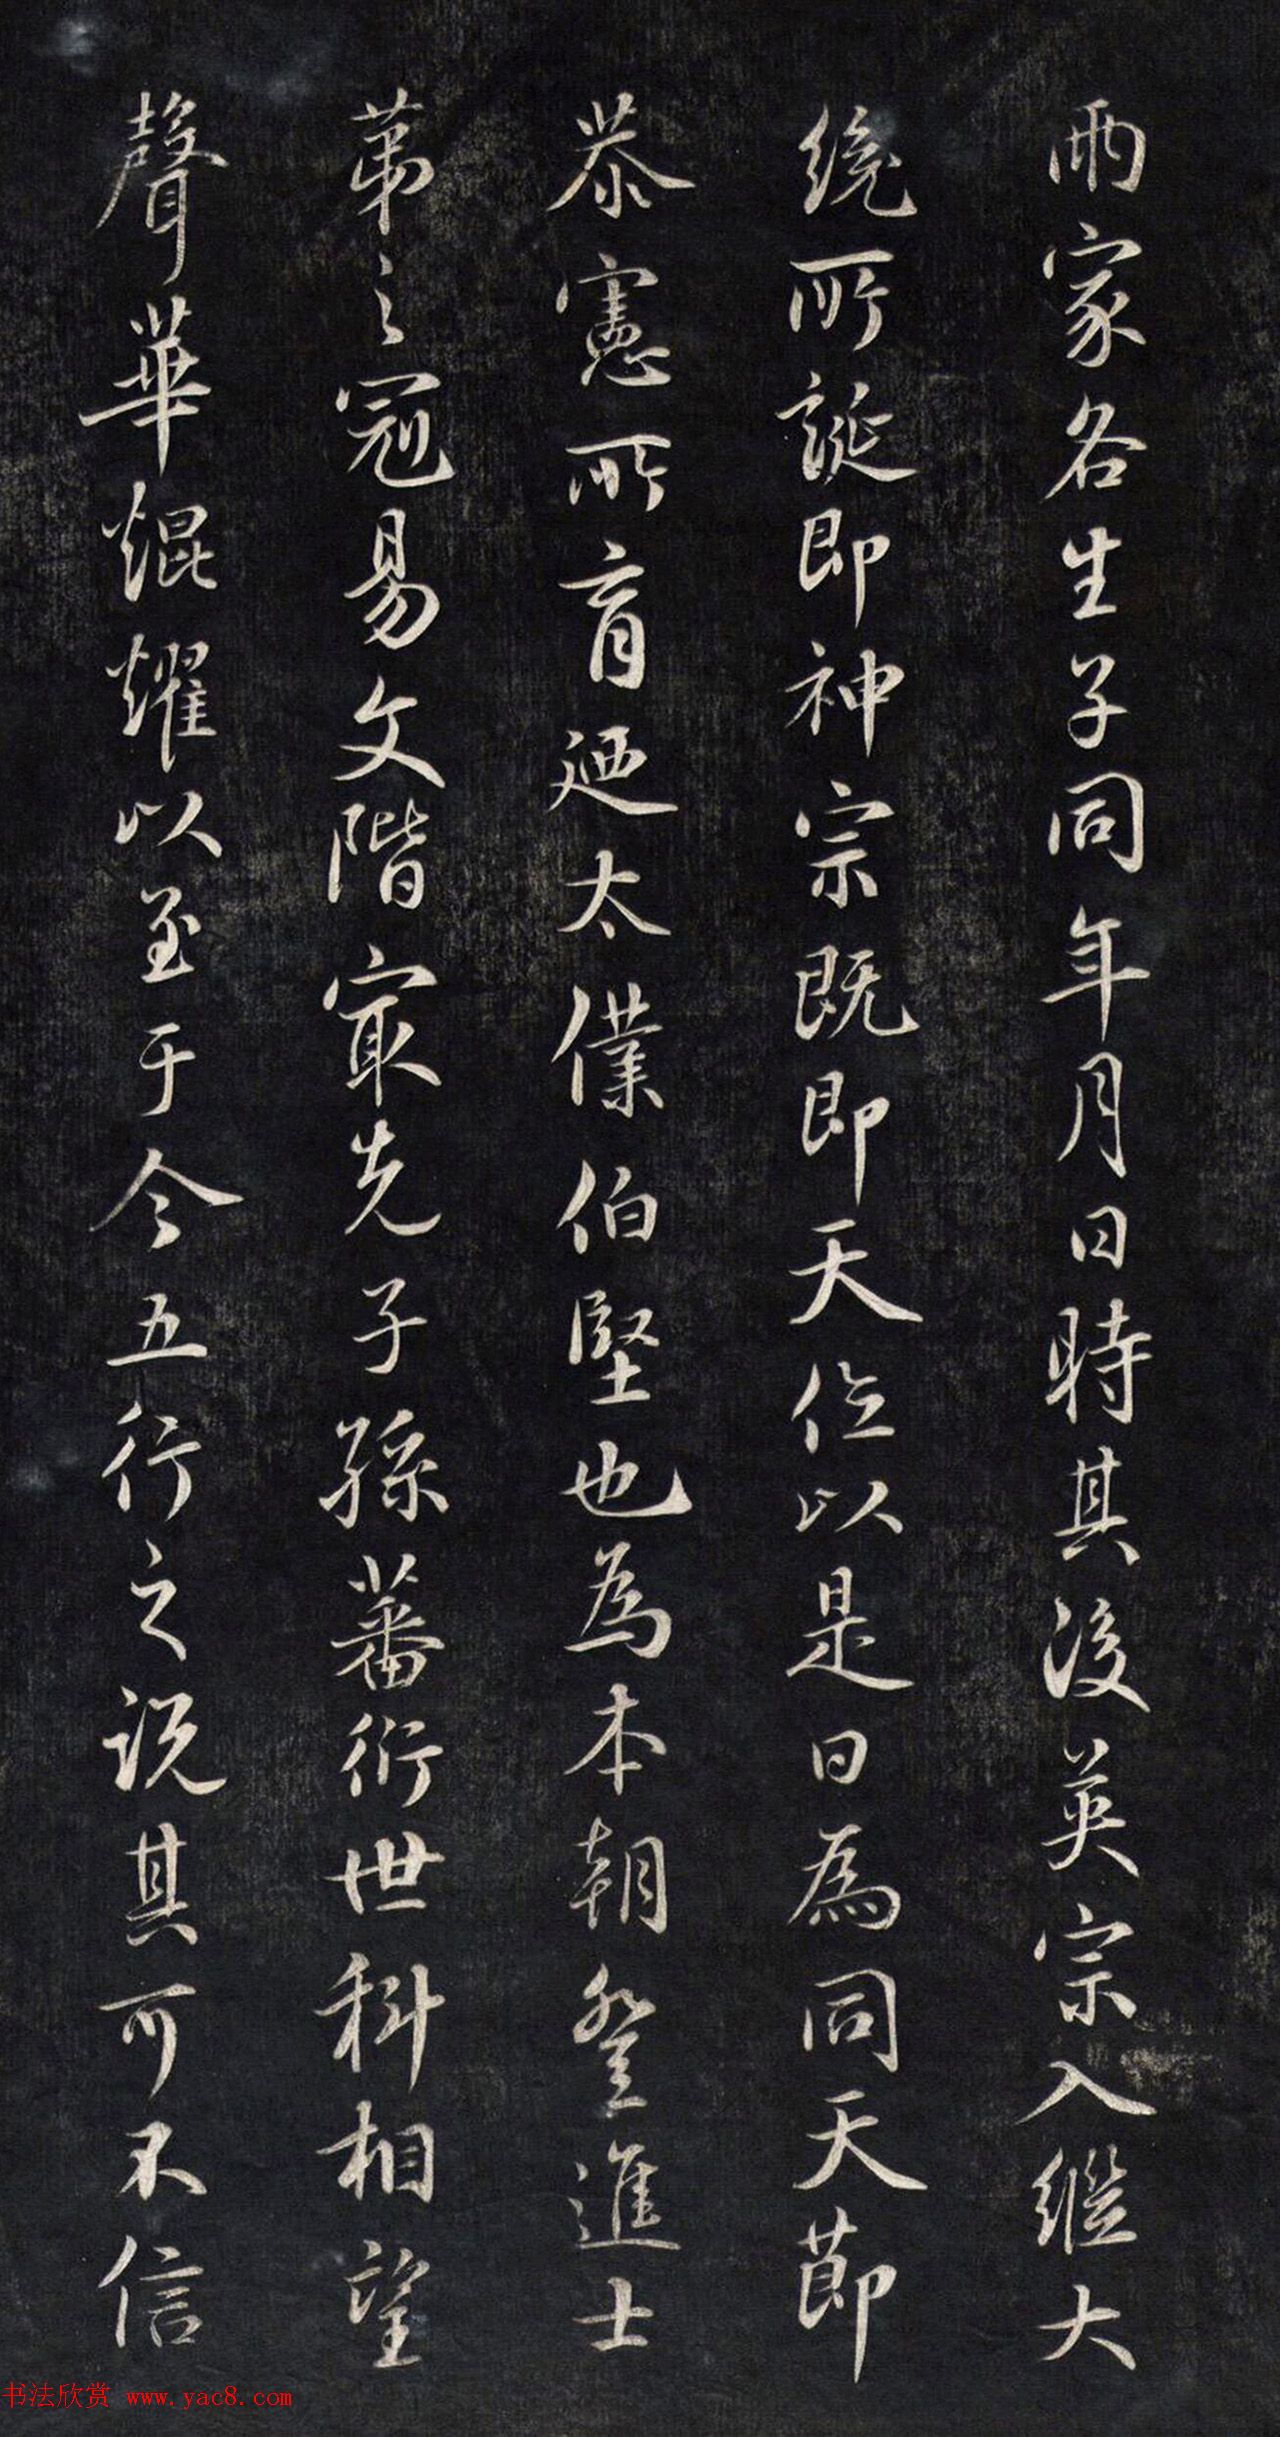 兩家各生子同年月日時其後英宗入繼大
統所誕即神宗既即天位以是日為同天節
恭憲所育廼太僕伯堅也為本朝登進士
第之冠易文階最先子孫蕃衍世科相望
聲華焜耀以至于今五行之說其可不信
书法欣赏 www.yac8.com